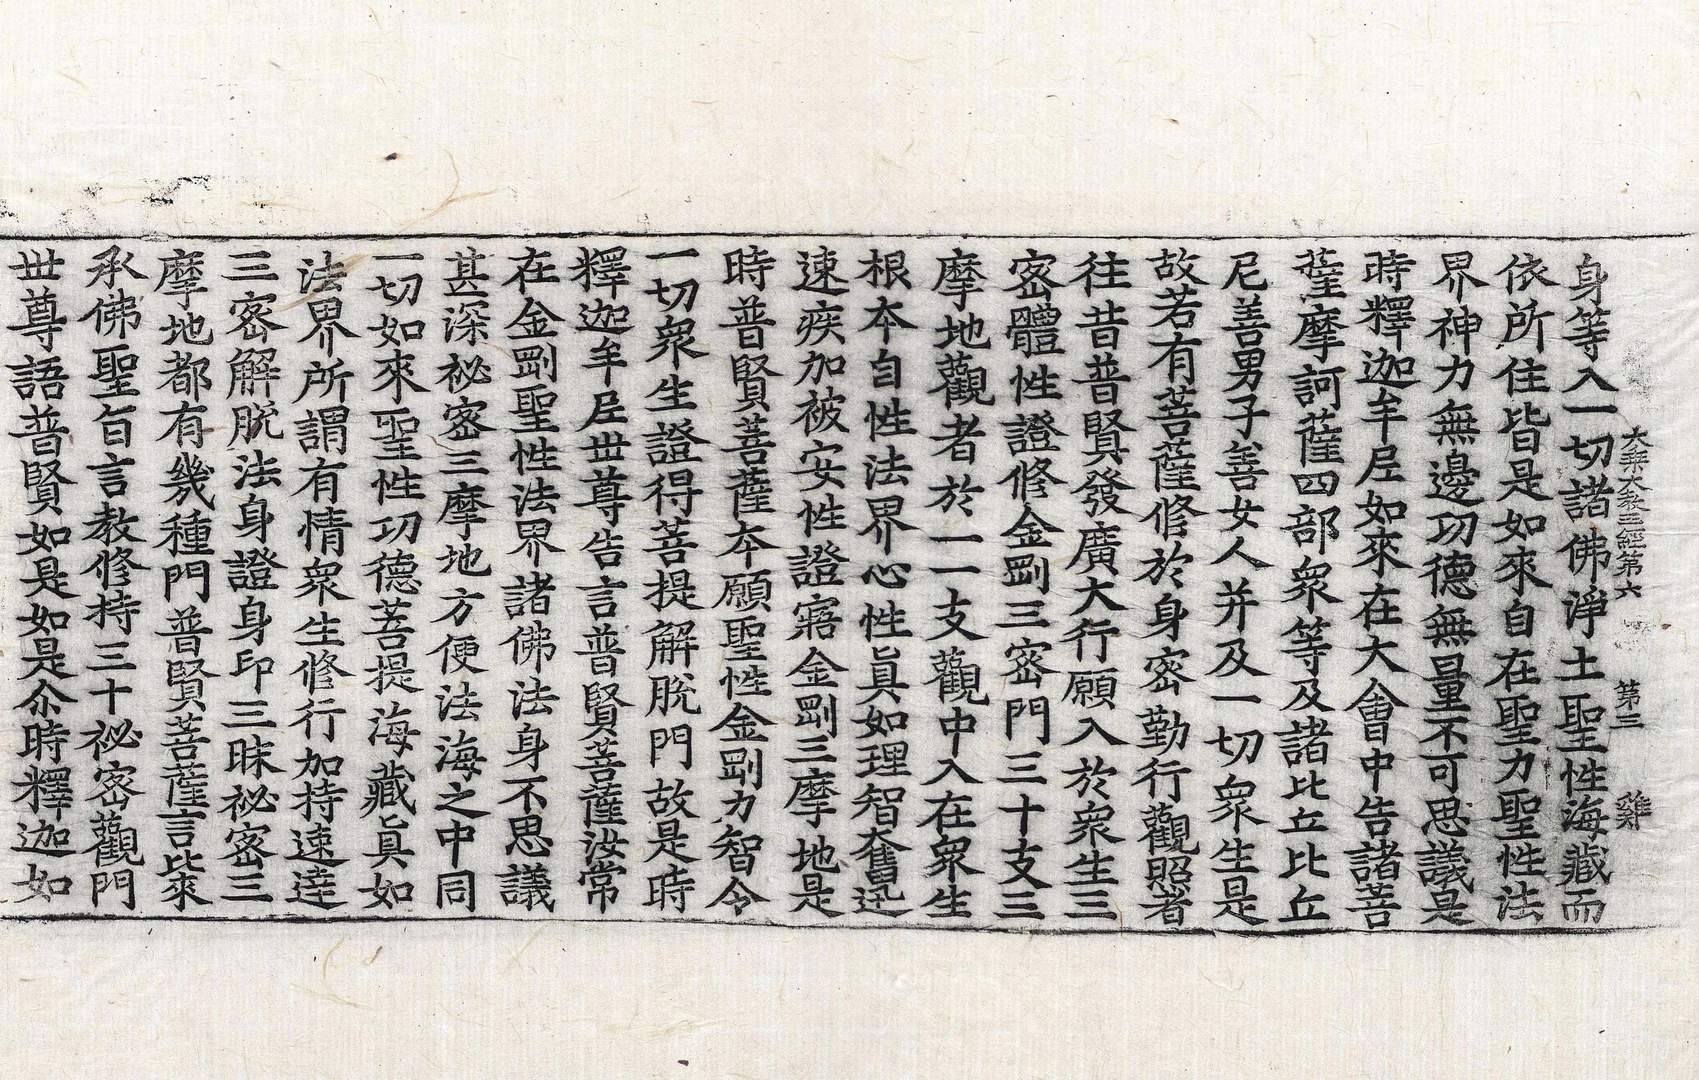 大乘大敎王經第六 第三 雞
身等入一切諸佛淨土聖性海藏而
依所住皆是如來自在聖力聖性法
界神力無邊功德無量不可思議是
時釋迦牟尼如來在大會中告諸菩
薩摩訶薩四部衆等及諸比丘比丘
尼善男子善女人并及一切衆生是
故若有菩薩修於身密勤行觀照者
往昔普賢發廣大行願入於衆生三
密體性證修金剛三密門三十支三
摩地觀者於一一支觀中入在衆生
根本自性法界心性眞如理智奮迅
速疾加被安性證寤金剛三摩地是
時普賢菩薩本願聖性金剛力智令
一切衆生證得菩提解脫門故是時
釋迦牟尼世尊告言普賢菩薩汝常
在金剛聖性法界諸佛法身不思議
甚深祕密三摩地方便法海之中同
一切如來聖性功德菩提海藏眞如
法界所謂有情衆生修行加持速達
三密解脫法身證身印三昧祕密三
摩地都有幾種門普賢菩薩言比來
承佛聖旨言教修持三十祕密觀門
世尊語普賢如是如是尒時釋迦如